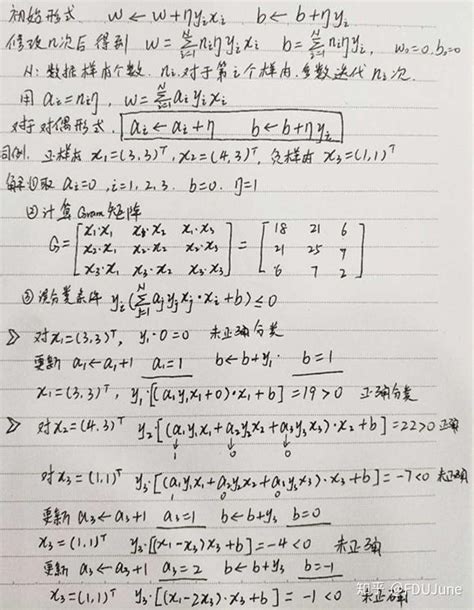 初始形式 w ← w + ηyᵢxᵢ b ← b + ηyᵢ
修改n次后得到 w = Σᵢ₌₁ᴺ nᵢηyᵢxᵢ b = Σᵢ₌₁ᴺ nᵢηyᵢ, w₀=0, b₀=0
N: 数据样本个数. nᵢ 对于第i个样本,参数迭代nᵢ次.
用 aᵢ = nᵢη, w = Σᵢ₌₁ᴺ aᵢyᵢxᵢ
对于对偶形式. aᵢ ← aᵢ + η b ← b + ηyᵢ
同例. 正样本 x₁=(3,3)ᵀ, x₂=(4,3)ᵀ, 负样本 x₃=(1,1)ᵀ
解 ①取 aᵢ=0, i=1,2,3. b=0. η=1
②计算Gram矩阵
G = [x₁·x₁ x₁·x₂ x₁·x₃ = [18 21 6
x₂·x₁ x₂·x₂ x₂·x₃ 21 25 7
x₃·x₁ x₃·x₂ x₃·x₃] 6 7 2]
③误分类条件 yᵢ(Σⱼ₌₁ᴺ aⱼyⱼxⱼ·xᵢ+b) ≤ 0
对x₁=(3,3)ᵀ, y₁·0=0 未正确分类
更新 a₁←a₁+1 a₁=1 b←b+y₁. b=1
x₁=(3,3)ᵀ, y₁·[(a₁y₁x₁+0)·x₁+b]=19>0 正确分类
对x₂=(4,3)ᵀ y₂[(a₁y₁x₁+a₂y₂x₂+a₃y₃x₃)·x₂+b]=22>0 正确
1 0 0
对x₃=(1,1)ᵀ y₃·[(a₁y₁x₁+a₂y₂x₂+a₃y₃x₃)·x₃+b]=-7<0 未正确
1 0 0
更新 a₃←a₃+1 a₃=1 b←b+y₃ b=0
x₃=(1,1)ᵀ y₃·[(x₁-x₃)x₃+b]=-4<0 未正确
更新 a₃←a₃+1 a₃=2 b←b+y₃ b=-1
x₃=(1,1)ᵀ y₃[(x₁-2x₃)·x₃+b] = -1<0 未正确
知乎 @FDUJune